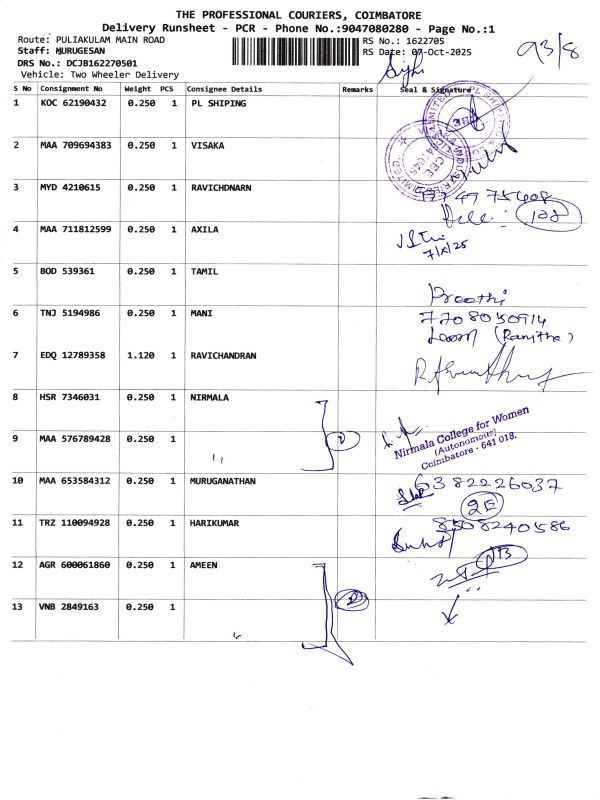 THE PROFESSIONAL COURIERS, COIMBATORE
Delivery Runsheet - PCR - Phone No.:9047080280 - Page No.:1
Route: PULIAKULAM MAIN ROAD
RS No.: 1622705
Staff: MURUGESAN
RS Date: 07-Oct-2025
93/8
DRS No.: DCJB162270501
Vehicle: Two Wheeler Delivery
S No Consignment No Weight PCS Consignee Details Remarks Seal & Signature
1 KOC 62190432 0.250 1 PL SHIPING
2 MAA 709694383 0.250 1 VISAKA
3 MYD 4210615 0.250 1 RAVICHDNARN
108
4 MAA 711812599 0.250 1 AXILA
7/X/25
5 BOD 539361 0.250 1 TAMIL
Preethi
6 TNJ 5194986 0.250 1 MANI
7708050914
(Ranitha)
7 EDQ 12789358 1.120 1 RAVICHANDRAN
8 HSR 7346031 0.250 1 NIRMALA
Nirmala College for Women
(Autonomous)
Coimbatore - 641 018.
9 MAA 576789428 0.250 1 〃
2
10 MAA 653584312 0.250 1 MURUGANATHAN
6382226037
2E
11 TRZ 110094928 0.250 1 HARIKUMAR
8508240586
12 AGR 600061860 0.250 1 AMEEN
13 VNB 2849163 0.250 1 〃
2